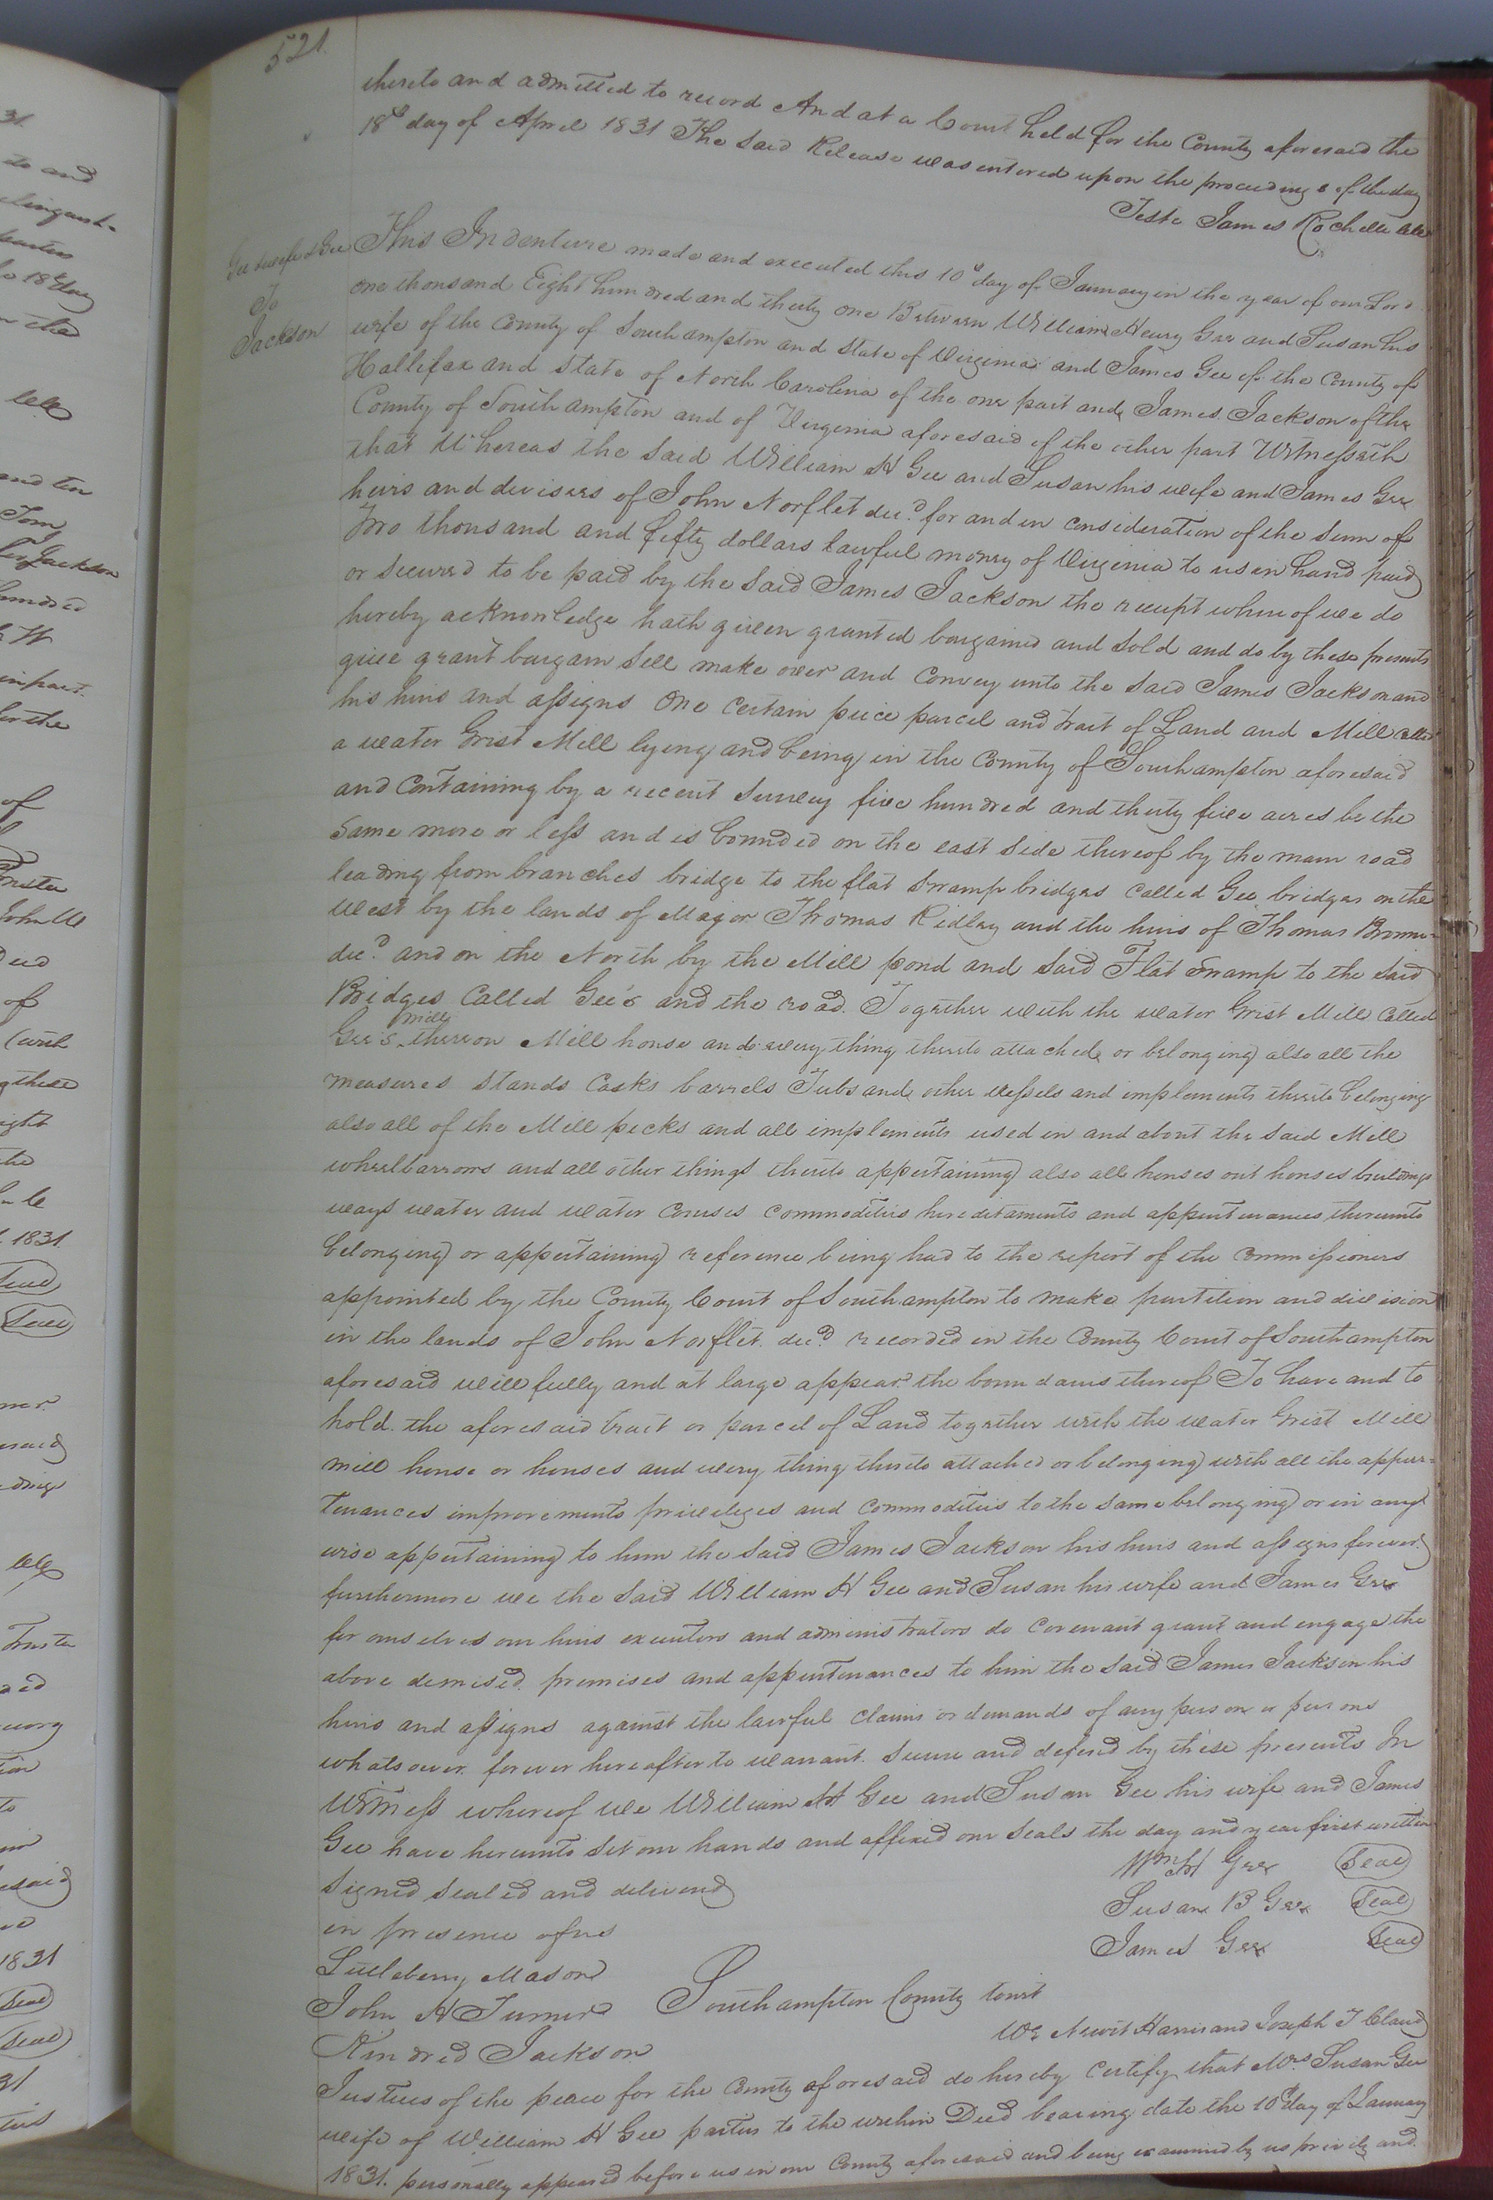 521.
thereto and admitted to record And at a Court held for the County aforesaid the
18th day of April 1831 The Said Release was entered upon the proceedings of the day
Teste James Rochelle Clk
Gee & wife & Gee
To
Jackson
This Indenture made and executed this 10th day of January in the year of our Lord
one thousand Eight hundred and thirty one Between William Henry Gee and Susan his
wife of the County of Southampton and State of Virginia and James Gee of the County of
Hallifax and State of North Carolina of the one part and James Jackson of the
County of Southampton and of Virginia aforesaid of the other part Witnesseth
that Whereas the Said William H Gee and Susan his wife and James Gee
heirs and devisers of John Norflet decd. for and in consideration of the Sum of
Two thousand and fifty dollars lawful money of Virginia to us in hand paid
or Secured to be paid by the Said James Jackson the receipt whereof we do
hereby acknowledge hath given granted bargained and Sold and do by these presents
give grant bargain Sell make over and Convey unto the Said James Jackson and
his heirs and assigns One Certain peice parcel and tract of Land and Mill called
a water Grist Mill lying and being in the County of Southampton aforesaid
and Containing by a recent Survey five hundred and thirty five acres be the
Same more or less and is bounded on the east Side thereof by the main road
leading from branches bridge to the flat Swamp bridges Called Gee bridges on the
West by the lands of Major Thomas Ridley and the heirs of Thomas
decd. and on the North by the Mill pond and Said Flat Swamp to the Said
Bridges Called Gee's and the road. Together with the water Grist Mill Called
Gee's mill thereon Mill house and every thing thereto attached or belonging also all the
measures Stands Casks barrels Tubs and other vessels and implements thereto belonging
also all of the Mill pecks and all implements used in and about the Said Mill
wheelbarrows and all other things thereto appertaining also all houses out houses buildings
ways water and water Corses Commodities hereditaments and appurtenances thereunto
belonging or appertaining reference being had to the report of the Commissioners
appointed by the County Court of Southampton to make partition and division
in the lands of John Norflet. decd. recorded in the County Court of Southampton
aforesaid will fully and at large appear the boundaries thereof To have and to
hold. the aforesaid tract or parcel of Land together with the water Grist Mill
mill house or houses and every thing thereto attached or belonging with all the appur=
tenances improvements priveleges and Commodities to the Same belonging or in any
wise appertaining to him the Said James Jackson his heirs and assigns forever
furthermore we the Said William H Gee and Susan his wife and James Gee
for ourselves our heirs executors and administrators do Covenant grant and engage the
above demised. premises and appurtenances to him the Said James Jackson his
heirs and assigns against the lawful Claims or demands of any person or persons
whatsoever. forever hereafter to warrant. Secure and defend by these presents In
Witness whereof we William H Gee and Susan Gee his wife and James
Gee have hereunto Set our hands and affixed our Seals the day and year first written
Signed Sealed and delivered
in presence of us
Wm H Gee Seal
Susan B Gee Seal
James Gee Seal
Littleberry Mason
John H Turner
Kindred Jackson
Southampton County towit
We Newit Harris and Joseph T Claud
Justices of the peace for the County aforesaid do hereby Certify that Mrs. Susan Gee
wife of William H Gee parties to the within Deed bearing date the 10th day of January
1831. personally appeared before us in our County aforesaid and being examined by us privily and